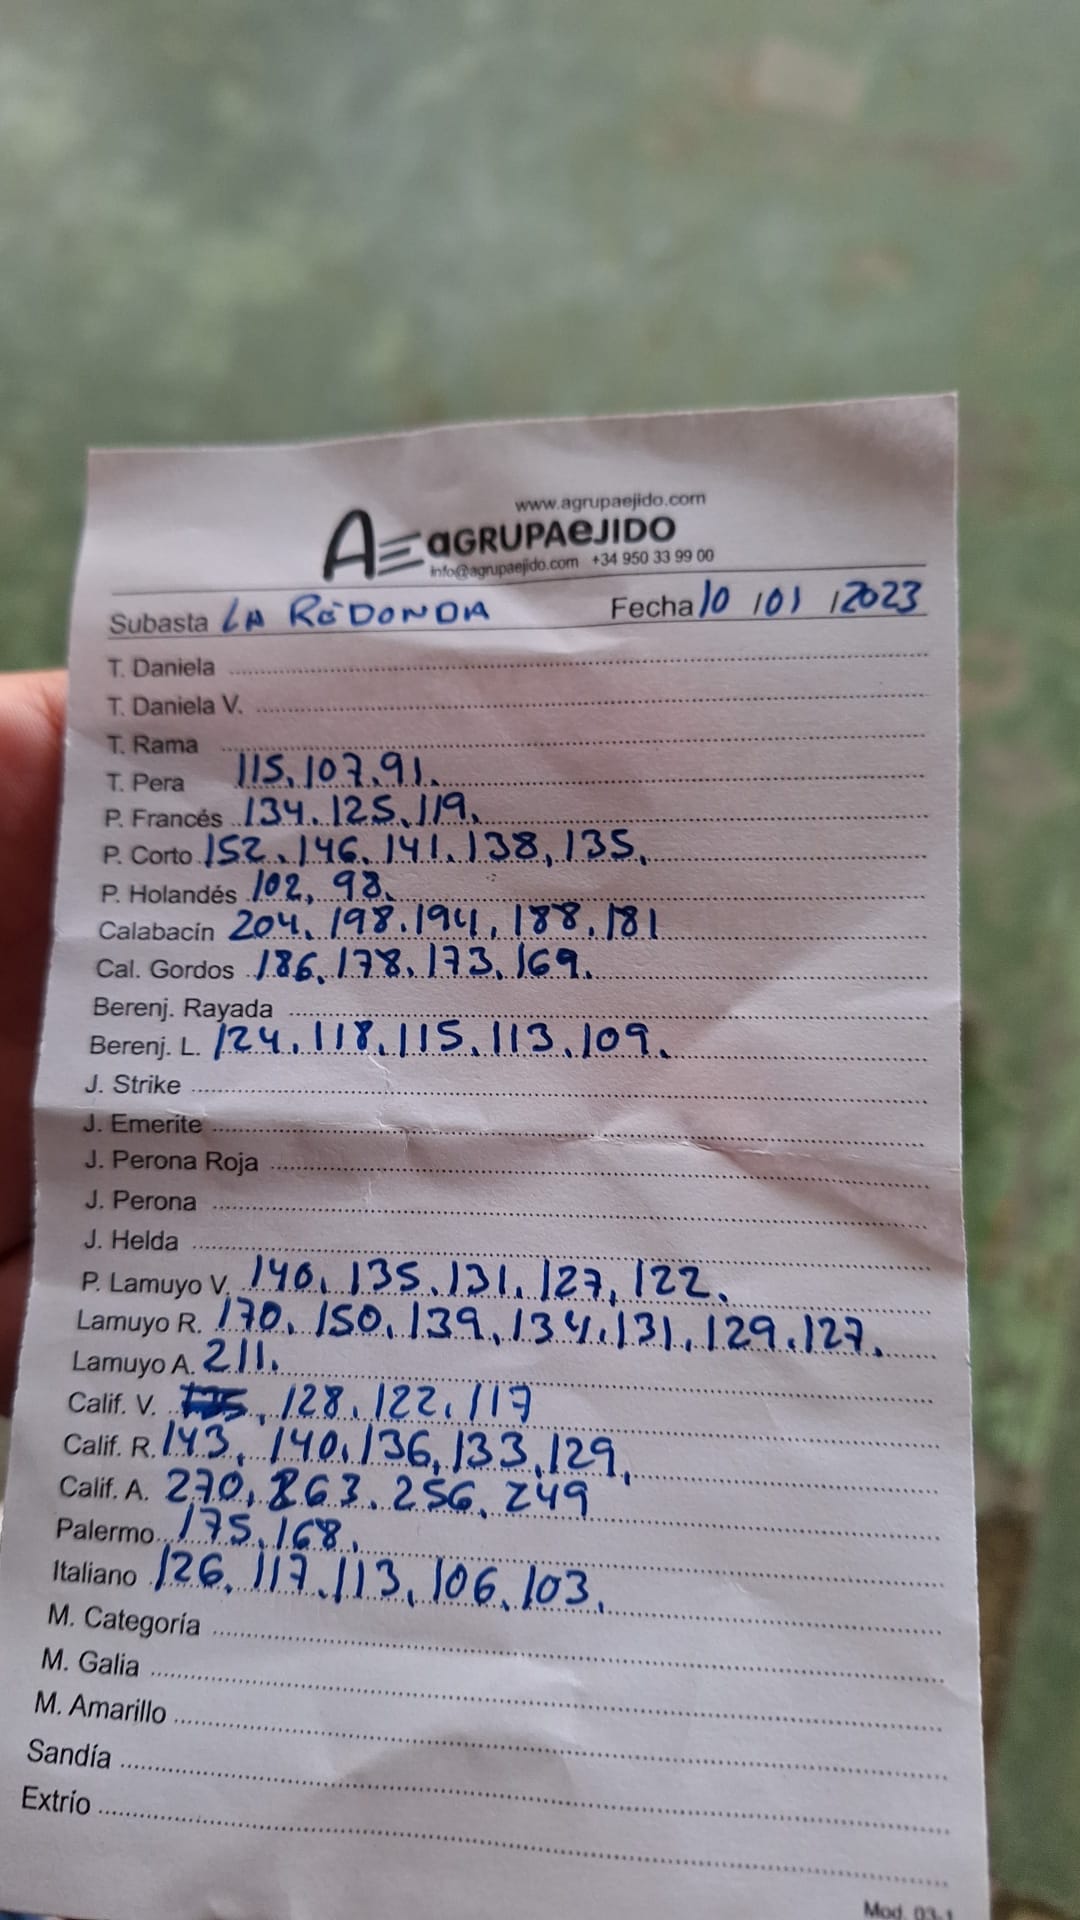 www.agrupaejido.com
AE aGRUPAeJIDO
info@agrupaejido.com +34 950 33 99 00
Subasta LA REDONDA Fecha 10 / 01 / 2023
T. Daniela
T. Daniela V.
T. Rama
T. Pera 115. 107. 91.
P. Francés 134. 125. 119.
P. Corto 152. 146. 141. 138, 135.
P. Holandés 102, 98.
Calabacín 204. 198. 194. 188. 181
Cal. Gordos 186. 178. 173. 169.
Berenj. Rayada
Berenj. L. 124. 118. 115. 113. 109.
J. Strike
J. Emerite
J. Perona Roja
J. Perona
J. Helda
P. Lamuyo V. 140. 135. 131. 127, 122.
Lamuyo R. 170. 150. 139. 134. 131. 129. 127.
Lamuyo A. 211.
Calif. V. , 128. 122. 117
Calif. R. 143, 140. 136, 133, 129,
Calif. A. 270, 263. 256. 249
Palermo 175. 168.
Italiano 126. 117. 113, 106. 103.
M. Categoría
M. Galia
M. Amarillo
Sandía
Extrío
Mod. 03-1